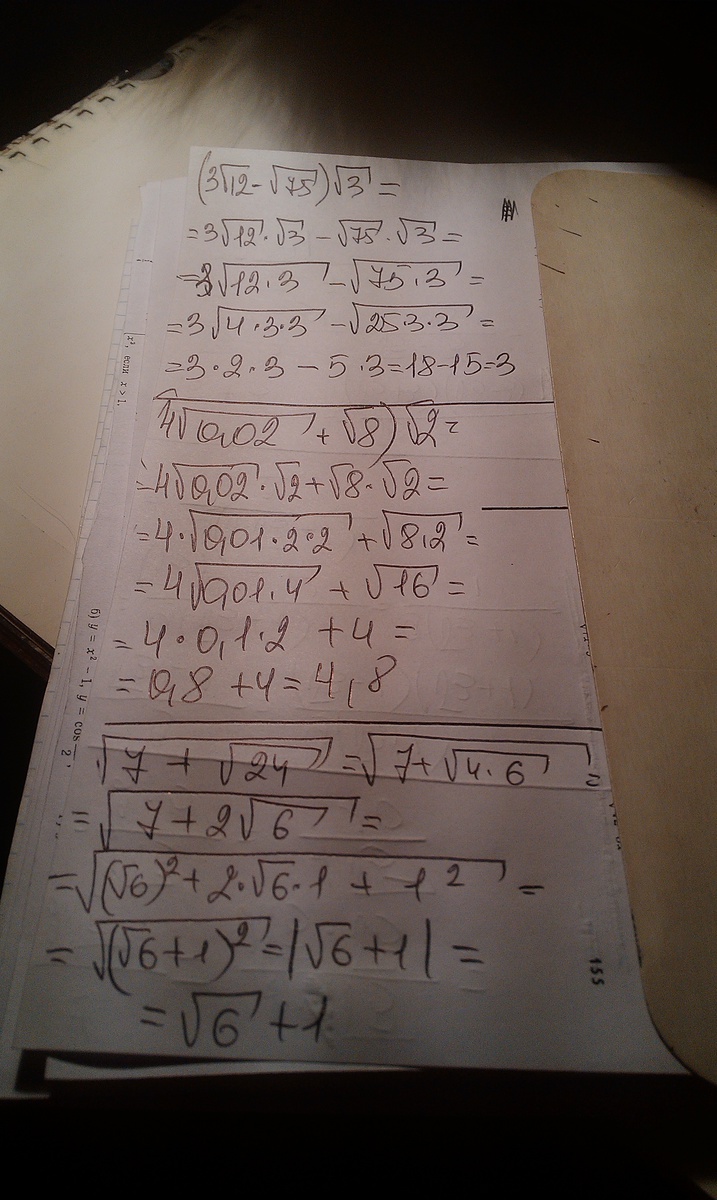 (3√12 - √75)√3 =
= 3√12 · √3 - √75 · √3 =
= 3√12·3 - √75·3 =
= 3√4·3·3 - √25·3·3 =
= 3·2·3 - 5·3 = 18 - 15 = 3
(4√0,02 + √8)√2 =
= 4√0,02 · √2 + √8 · √2 =
= 4·√0,01·2·2 + √8·2 =
= 4√0,01·4 + √16 =
= 4·0,1·2 + 4 =
= 0,8 + 4 = 4,8
√7 + √24 = √7 + √4·6 =
= √7 + 2√6 =
= √(√6)² + 2·√6·1 + 1² =
= √(√6+1)² = |√6+1| =
= √6 + 1
x², если x > 1.
б) y = x² - 1, y = cos
2
155